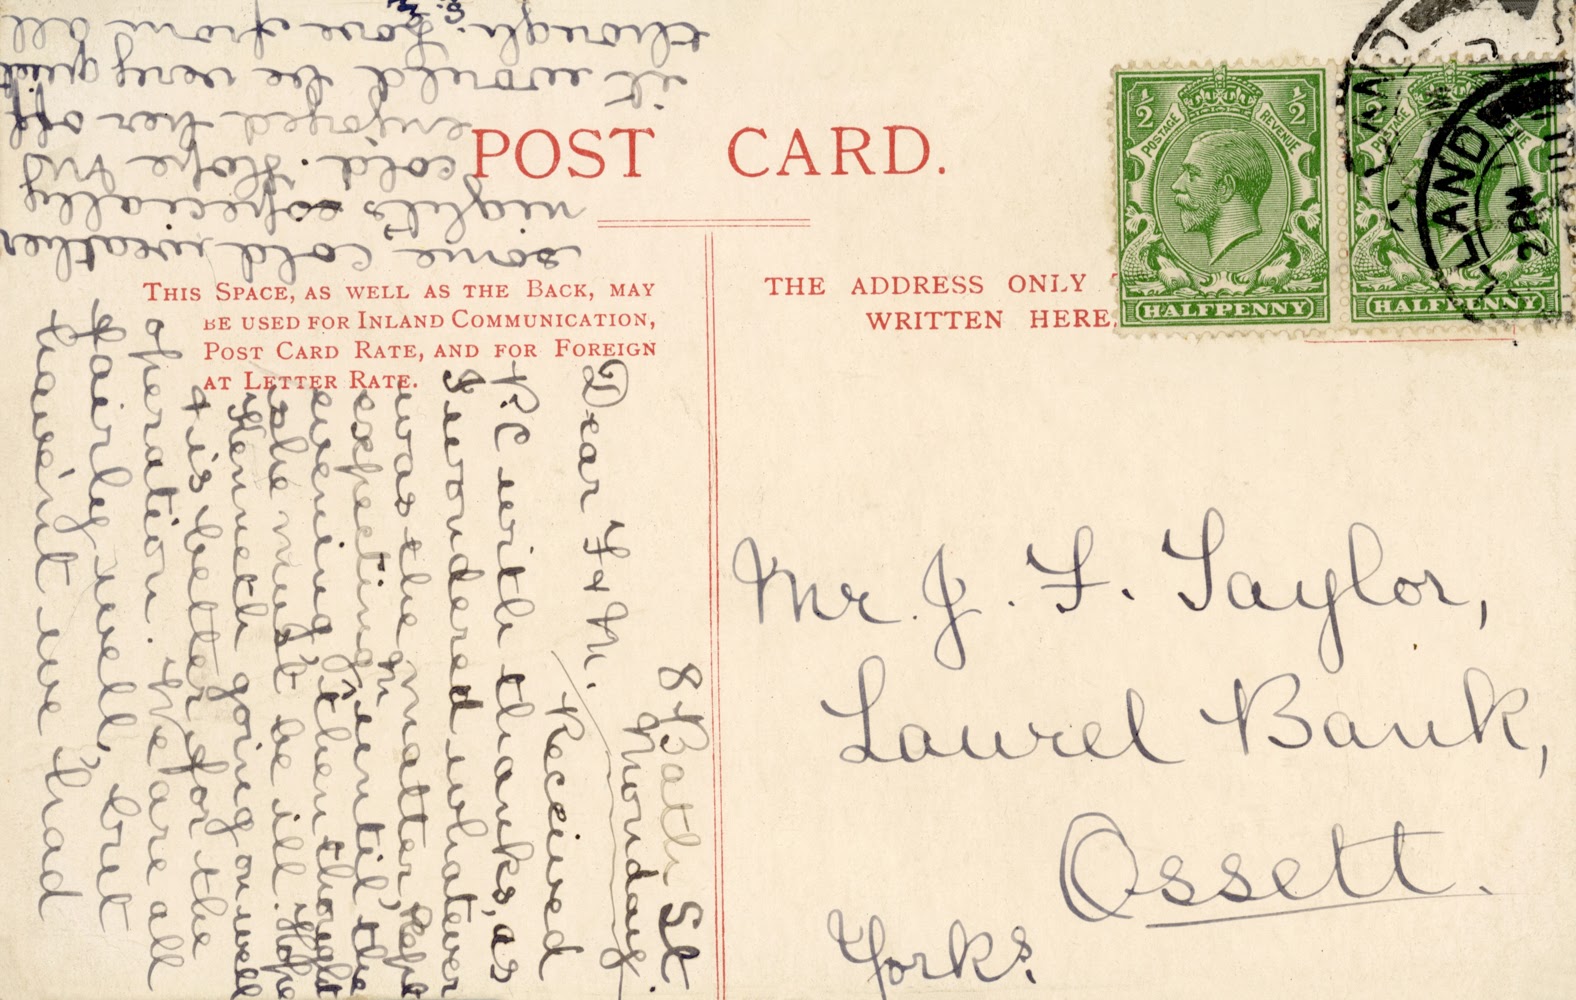 POST CARD.
THIS SPACE, AS WELL AS THE BACK, MAY
BE USED FOR INLAND COMMUNICATION,
POST CARD RATE, AND FOR FOREIGN
AT LETTER RATE.
THE ADDRESS ONLY
WRITTEN HERE.
½ ½
POSTAGE REVENUE
HALFPENNY
½
POSTAGE
HALFPENNY
LAND
2 PM
Mr. J. F. Taylor,
Laurel Bank,
Ossett.
Yorks.
8 Bath St.
Monday.
Dear F & M.
Received
P.C with thanks, as
I wondered whatever
was the matter, kept
expecting M until the
evening, then thought
she must be ill. Hope
Kenneth going on well
& is better for the
operation. We are all
fairly well, but
have'nt we had
some cold weather
night's especially
cold. Hope
enjoyed her off
it would be very quiet
though. Love from all